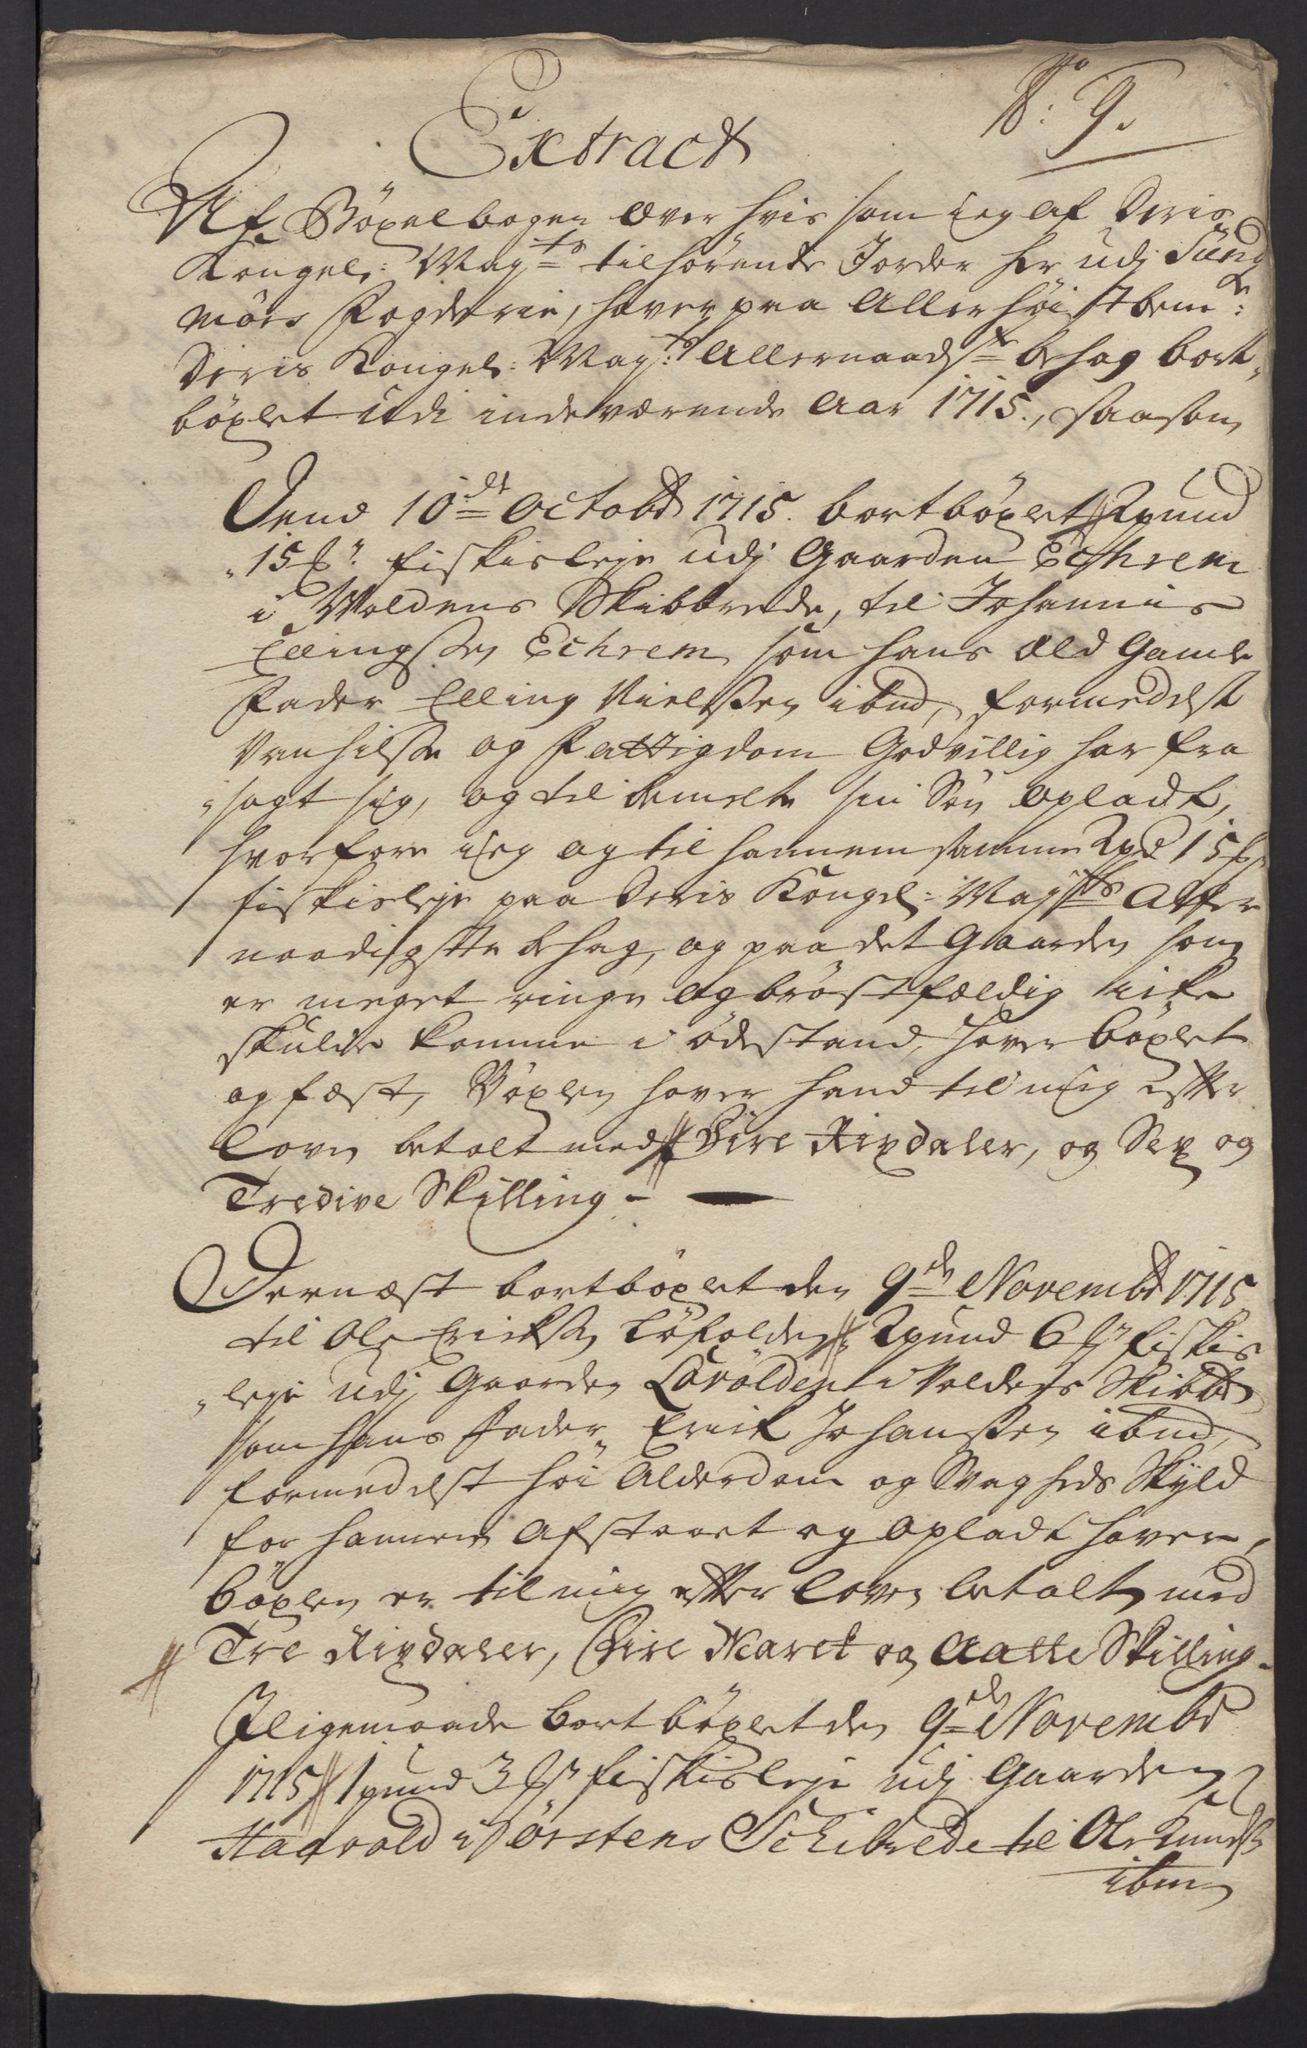 No: 9.
Extract
Af Böxelbogen over hvis som ieg af Deris
Kongel: Mayts tilhörende Jorder her udj Sund
mörs Fogderie, haver paa Allerhöistbemte:
Deris Kongel: Mayts: Allernaadste behag bort-
böxlet udi indeværende Aar 1715., saasom
Dend 10de Octobr 1715. bortböxlet 2 pund
15 mk: fiskisleje udj Gaarden Echrem
i Woldens Skibbrede, til Johannis
Ellingssen Echrem som hans Ald Gamle
Fader Elling Nielssen ibid, formedelst
Vanhilse og Fattigdom Godvillig har fra
sagt sig, og til bemelte sin Sön opladt,
hvorfore ieg og til hannem samme 2 pd 15 mk
fiskisleje paa Deris Kongel: Mayts Aller
naadigste behag, og paa det Gaarden som
er meget ringe og bröstfældig icke
skulde komme i ödestand, haver böxlet
og fæst, Böxlen haver hand til mig efter
Loven betalt med Fire Rixdaler, og Sex og
Tredive Skilling -
Dernæst bortböxlet den 9de Novembr 1715
til Ole Erichsen Löfolden 2 pund 6 mk fiskis
leje udj Gaarden Lövolden i Voldens Skibbr
som hans Fader Erich Johanssen ibid,
formedelst höi Alderdom og Svagheds Skyld
for hannem Afstaaet og opladt haver,
böxlen er til mig efter Loven betalt med
Tre Rixdaler, Fire Marck og Aatte Skilling.
Jligemaade bortböxlet den 9de Novembr
1715 1 pund 3 mk fiskisleje udj Gaarden
Haavold i Örstens Schibrede til Ole Knuds:
ibm